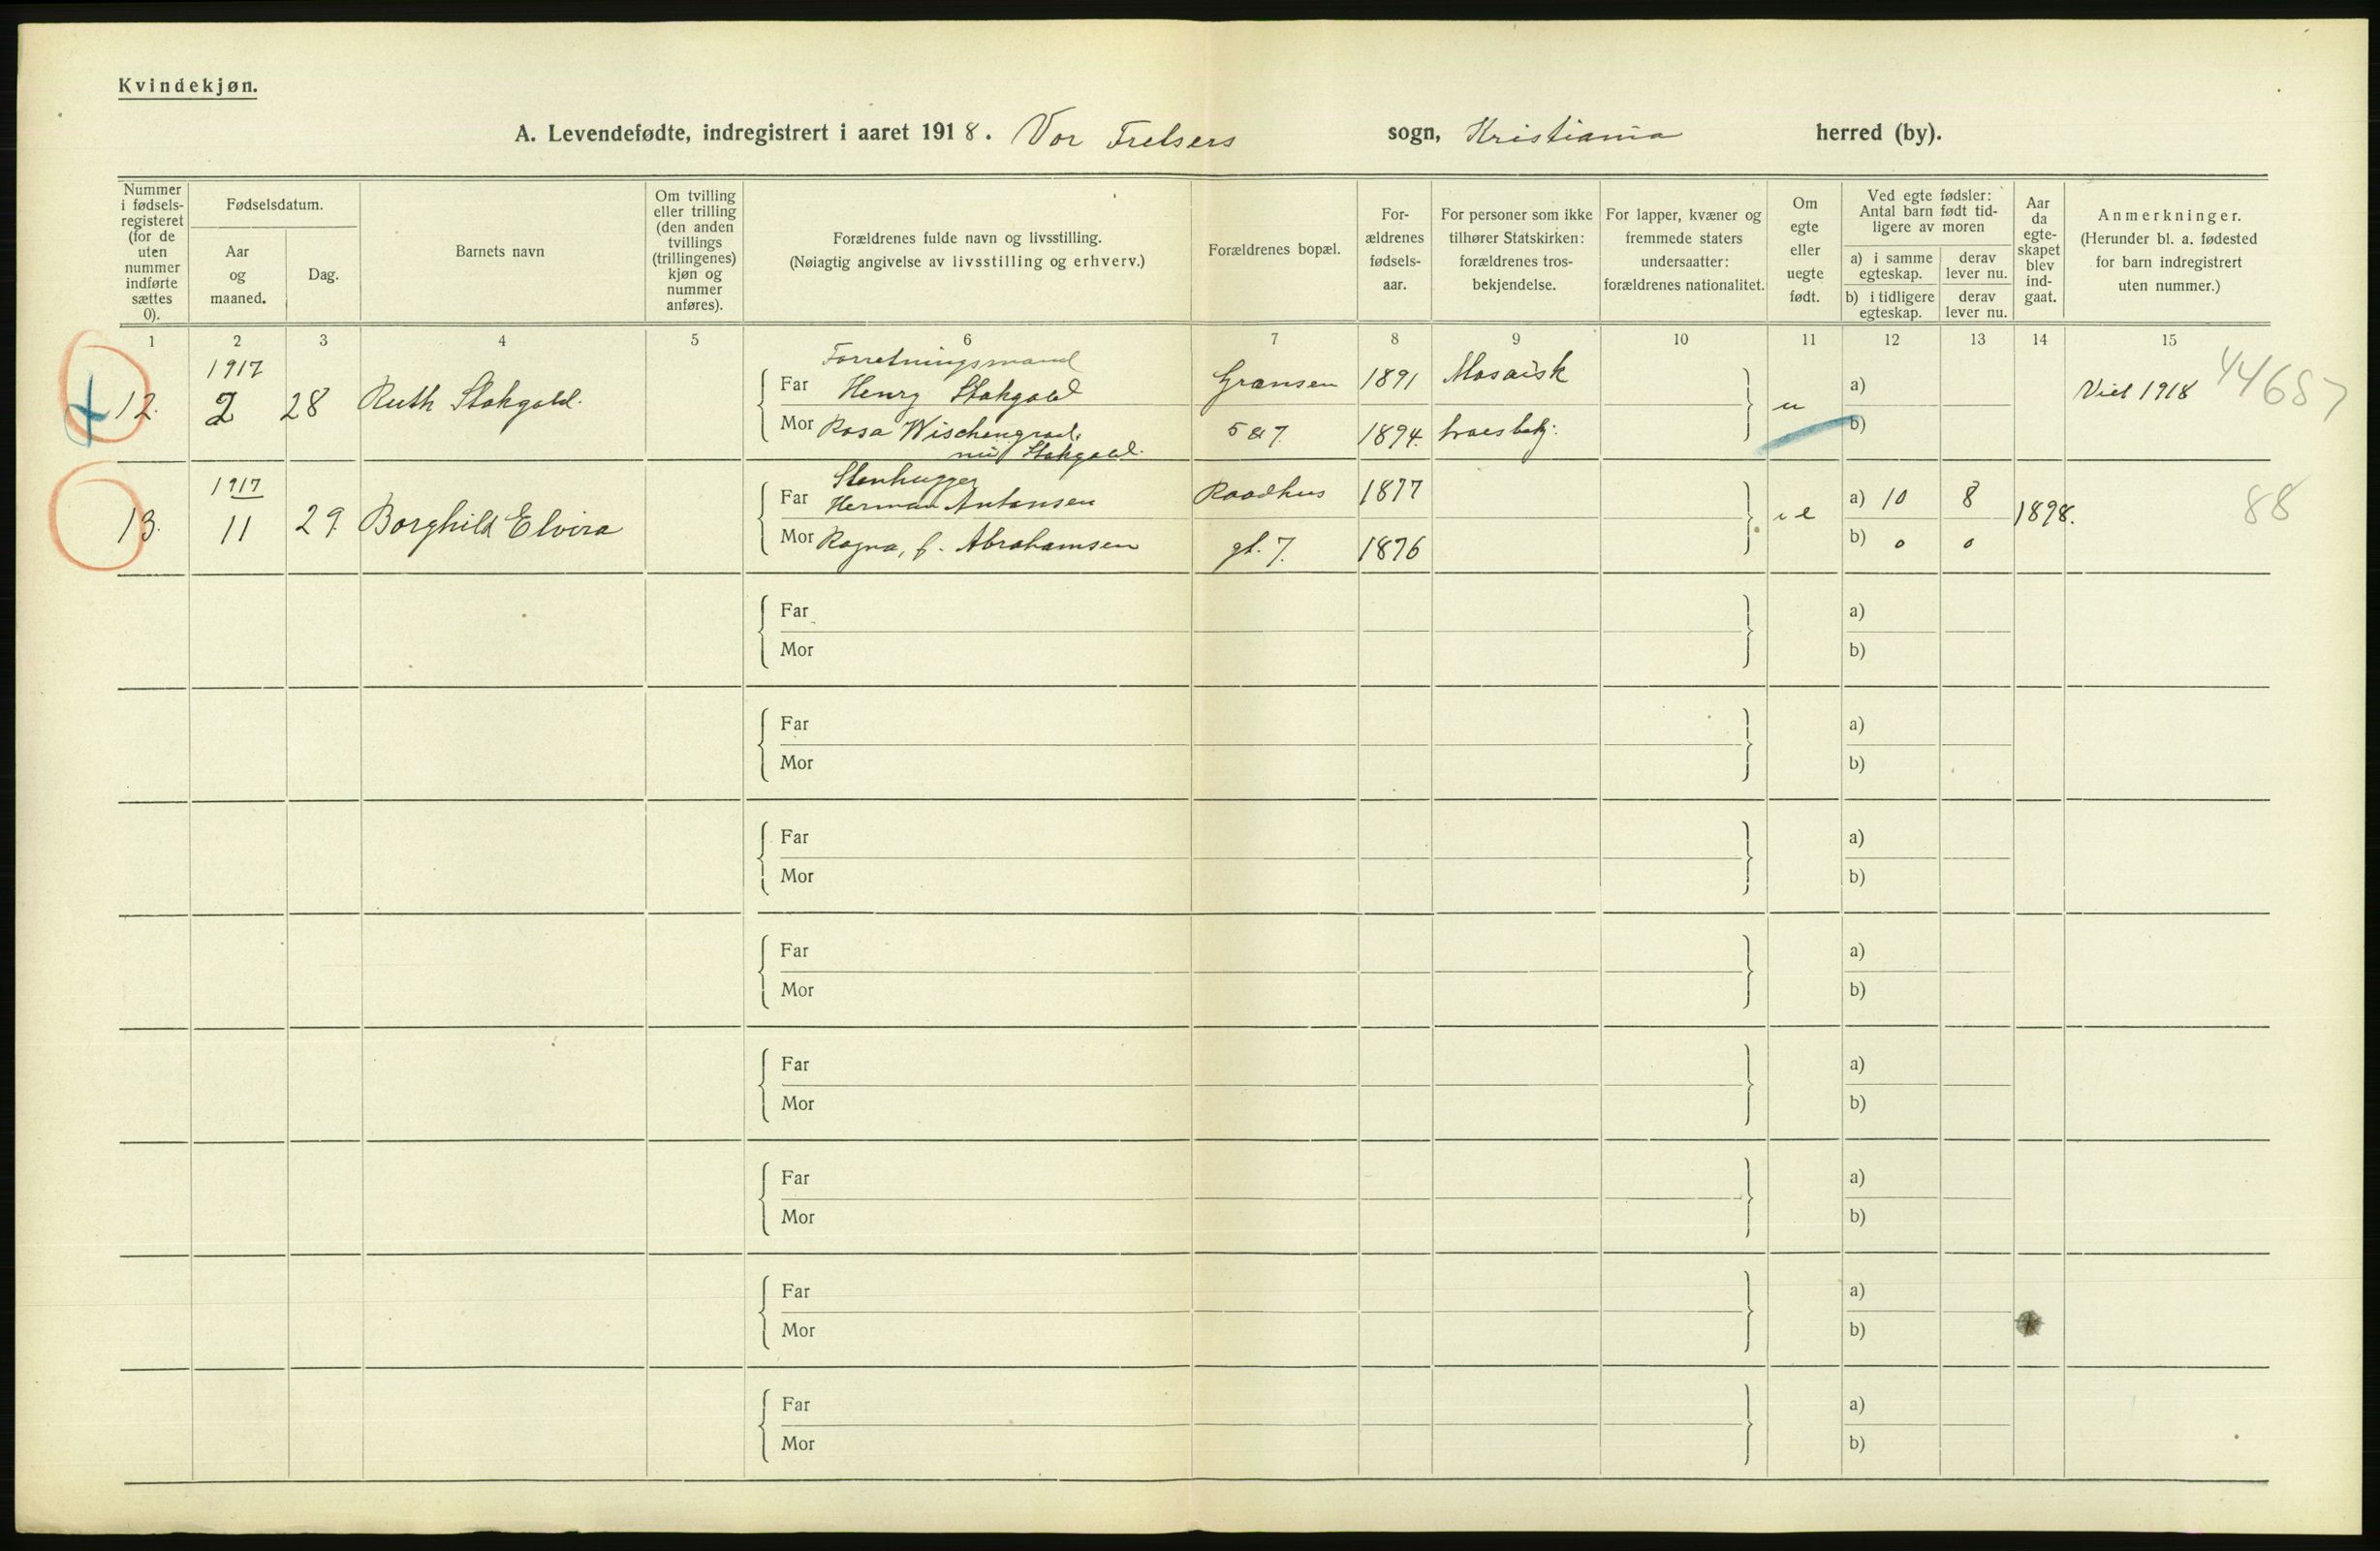 Kvindekjøn.
A. Levendefødte, indregistrert i aaret 1918. Vor Frelsers sogn, Kristiania herred (by).
Nummer i fødsels-registeret (for de uten nummer indførte sættes 0).
Fødselsdatum.
Aar og maaned.
Dag.
Barnets navn
Om tvilling eller trilling (den anden tvillings (trillingenes) kjøn og nummer anføres).
Forældrenes fulde navn og livsstilling.
(Nøiagtig angivelse av livsstilling og erhverv.)
Forældrenes bopæl.
For-ældrenes fødsels-aar.
For personer som ikke tilhører Statskirken: forældrenes tros-bekjendelse.
For lapper, kvæner og fremmede staters undersaatter: forældrenes nationalitet.
Om egte eller uegte født.
Ved egte fødsler: Antal barn født tid-ligere av moren
a) i samme egteskap.
derav lever nu.
b) i tidligere egteskap.
derav lever nu.
Aar da egte-skapet blev ind-gaat.
Anmerkninger.
(Herunder bl. a. fødested for barn indregistrert uten nummer.)
1 2 3 4 5 6 7 8 9 10 11 12 13 14 15
1917
Forretningsmand
12. 2 28 Ruth Stokgold.
Far Henry Stokgold Grænsen 1891 Mosaisk u a) Viet 1918 44687
Mor Rosa Wischengrad, 5 & 7. 1894. troesbekj: b)
nu Stokgold.
1917
Stenhugger
13. 11 29. Borghild Elvira
Far Herman Antonsen Raadhus 1877 a) 10 8 1898. 88
Mor Ragna, f. Abrahamsen gt. 7. 1876 b) 0 0
Far a)
Mor b)
Far a)
Mor b)
Far a)
Mor b)
Far a)
Mor b)
Far a)
Mor b)
Far a)
Mor b)
Far a)
Mor b)
Far a)
Mor b)